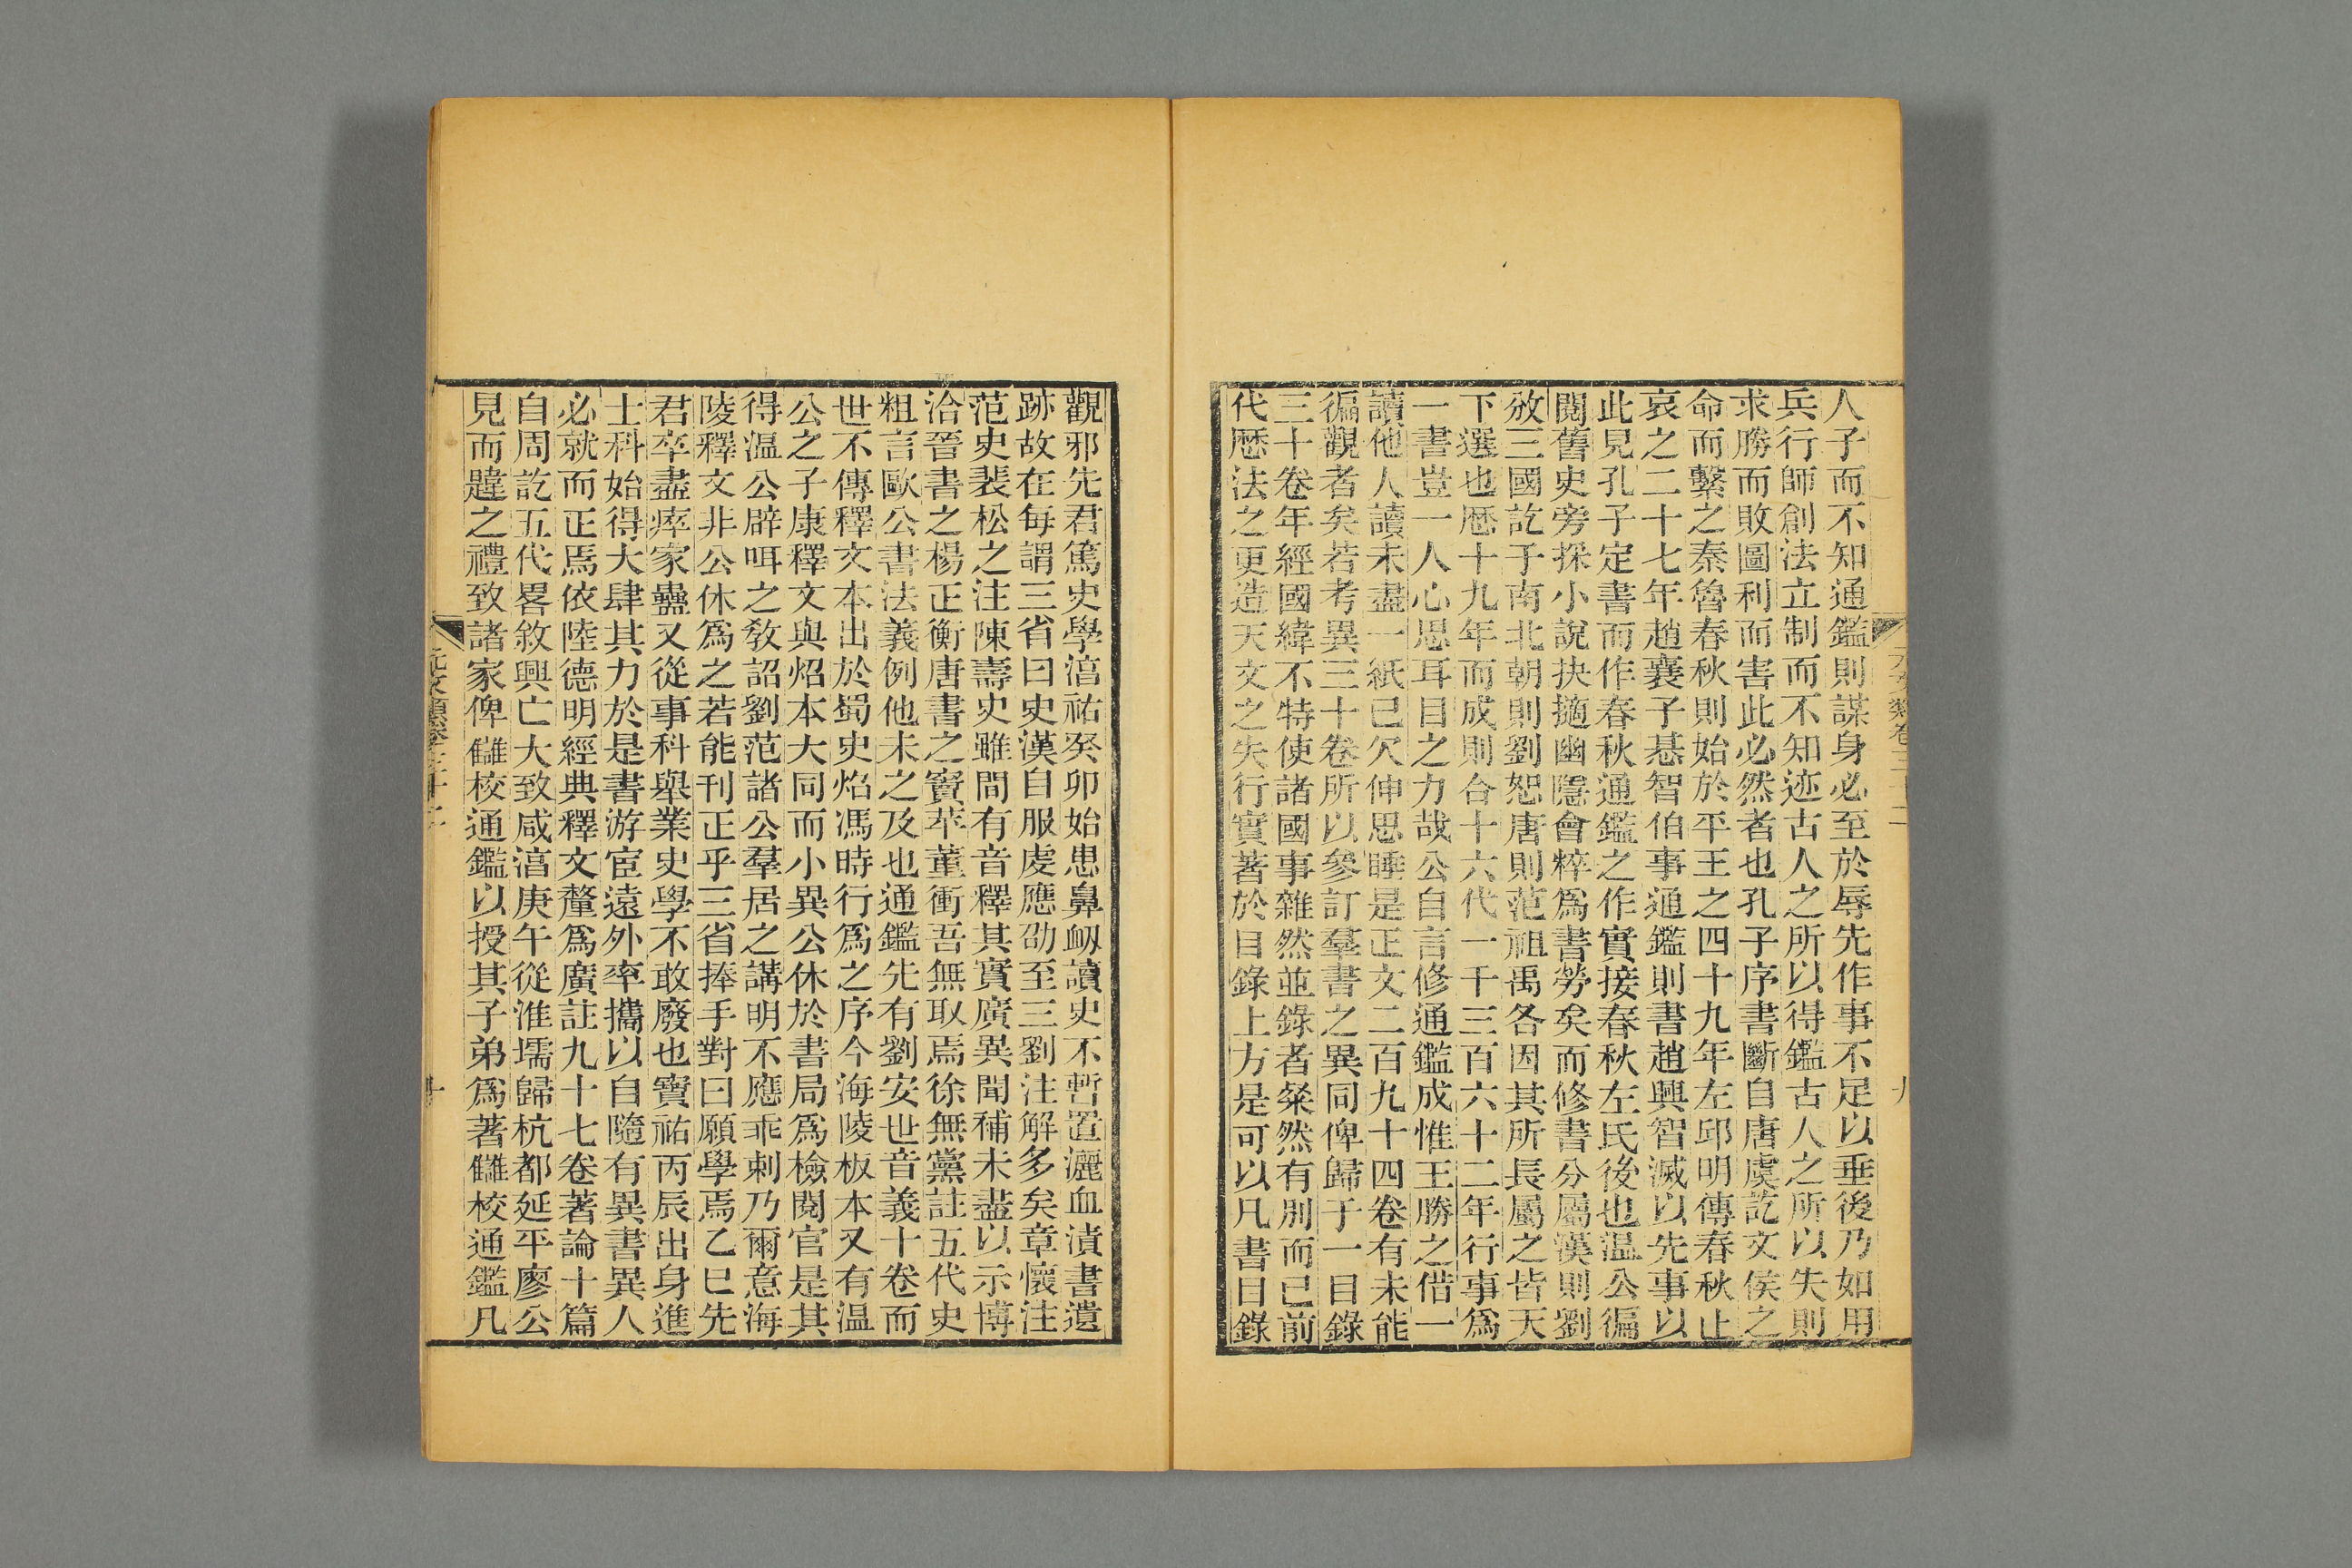 元文類卷三十二
九
人子而不知通鑑則謀身必至於辱先作事不足以垂後乃如用
兵行師創法立制而不知迹古人之所以得鑑古人之所以失則
求勝而敗圖利而害此必然者也孔子序書斷自唐虞訖文侯之
命而繫之秦魯春秋則始於平王之四十九年左邱明傳春秋止
哀之二十七年趙襄子惎智伯事通鑑則書趙興智滅以先事以
此見孔子定書而作春秋通鑑之作實接春秋左氏後也温公徧
閱舊史旁採小說抉擿幽隱會粹爲書勞矣而修書分屬漢則劉
攽三國訖于南北朝則劉恕唐則范祖禹各因其所長屬之皆天
下選也厯十九年而成則合十六代一千三百六十二年行事爲
一書豈一人心思耳目之力哉公自言修通鑑成惟王勝之借一
讀他人讀未盡一紙已欠伸思睡是正文二百九十四卷有未能
徧觀者矣若考異三十卷所以參訂羣書之異同俾歸于一目錄
三十卷年經國緯不特使諸國事雜然並錄者粲然有別而已前
代厯法之更造天文之失行實著於目錄上方是可以凡書目錄
觀邪先君篤史學淳祐癸卯始患鼻衂讀史不暫置灑血漬書遺
跡故在每謂三省曰史漢自服虔應劭至三劉注解多矣章懷注
范史裴松之注陳壽史雖間有音釋其實廣異聞補未盡以示博
洽晉書之楊正衡唐書之竇苹董衝吾無取焉徐無黨註五代史
粗言歐公書法義例他未之及也通鑑先有劉安世音義十卷而
世不傳釋文本出於蜀史炤馮時行爲之序今海陵板本又有温
公之子康釋文與炤本大同而小異公休於書局爲檢閱官是其
得温公辟咡之敎詔劉范諸公羣居之講明不應乖剌乃爾意海
陵釋文非公休爲之若能刊正乎三省捧手對曰願學焉乙巳先
君卒盡瘁家蠱又從事科舉業史學不敢廢也寶祐丙辰出身進
士科始得大肆其力於是書游宦遠外率攜以自隨有異書異人
必就而正焉依陸德明經典釋文釐爲廣註九十七卷著論十篇
自周訖五代畧敘興亡大致咸淳庚午從淮壖歸杭都延平廖公
見而韙之禮致諸家俾讎校通鑑以授其子弟爲著讎校通鑑凡
元文類卷三十二
十